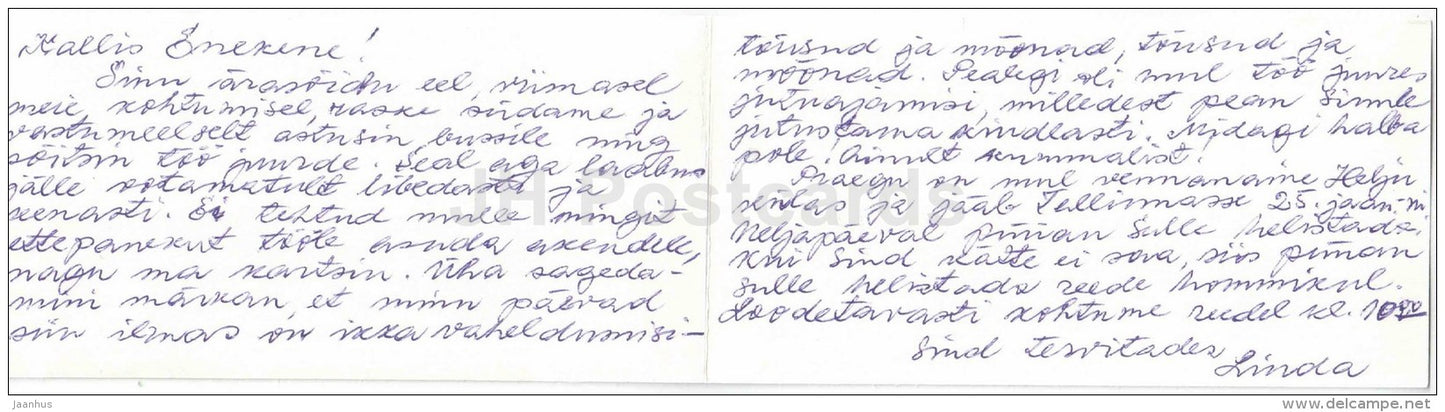 Kallis Enekene!
Sinu ärasõidu eel, viimasel
meie kohtumisel, raske südame ja
vastumeelselt astusin bussile ning
sõitsin töö juurde. Seal aga laabus
jälle ootamatult libedasti ja
kenasti. Ei tehtud mulle mingit
ettepanekut tööle asuda akendele,
nagu ma kartsin. Üha sageda-
mini märkan, et minu päevad
siin ilmas on ikka vaheldumisi-
tõusud ja mõõnad, tõusud ja
mõõnad. Pealegi oli mul töö juures
jutuajamisi, milledest pean Sinule
jutustama kindlasti. Midagi halba
pole. Ainult kummalist.
Praegu on mul vennanaine Helju
Tallinnasse 25. jaan-ni
Neljapäeval püüan Sulle helistada.
Kui Sind kätte ei saa, siis püüan
Sulle helistada reede hommikul.
Loodetavasti kohtume reedel kl. 10.00
Sind tervitades
Linda
JH Postcards
jaanhus
www.delcampe.net